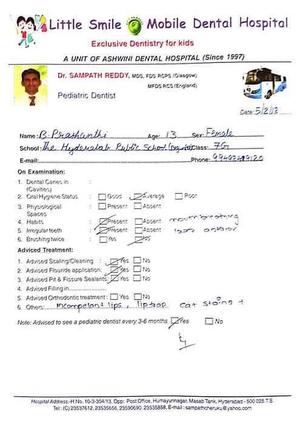 Little Smile Mobile Dental Hospital
Exclusive Dentistry for kids
A UNIT OF ASHWINI DENTAL HOSPITAL (Since 1997)
Dr. SAMPATH REDDY, MDS, FDS RCPS (Glasgow)
MFDS RCS (England)
Pediatric Dentist
Date: 5/2/13
Name: B. Prashanthi Age: 13 Sex: Female
School: The Hyderabad Public School Class: 7G
E-mail: Phone:
On Examination:
1. Dental Caries in :
(Cavities)
2. Oral Hygiene Status : Good Average Poor
3. Physiological : Present Absent
Spaces
4. Habits : Present Absent
5. Irregular teeth : Present Absent
6. Brushing twice : Yes
Adviced Treatment:
1. Advised Scaling/Cleaning : Yes No
2. Advised Flouride application: Yes No
3. Advised Pit & Fissure Sealants: Yes No
4. Advised Filling in
5. Advised Orthodontic treatment : Yes No
6. Others: Incompetent lips,
Note: Advised to see a pediatric dentist every 3-6 months Yes No
Hospital Address-H.No. 10-3-304/13, Opp: Post Office, Humayunnagar, Masab Tank, Hyderabad - 500 028 T.S.
Tel: (C) 23537612, 23535656, 23590690, 23535858, E-mail : sampathcheruku@yahoo.com